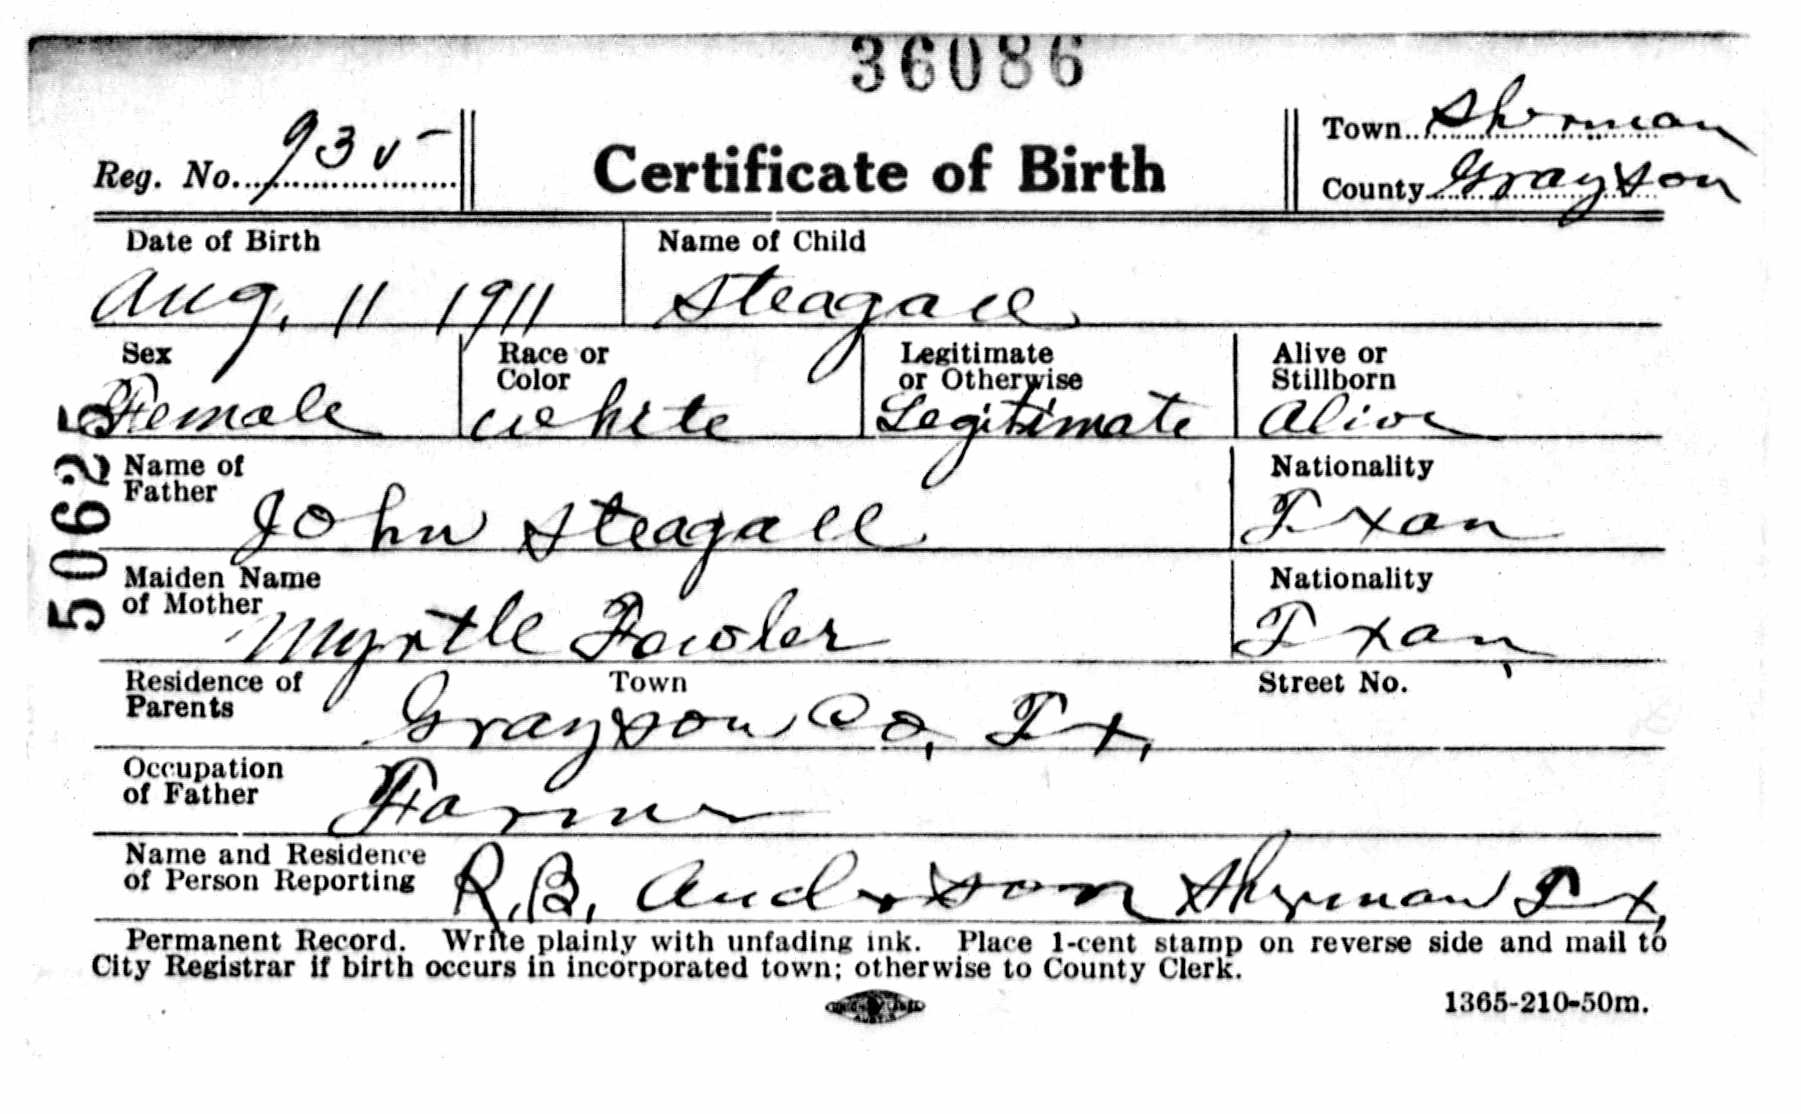 36086
Reg. No. 935
Certificate of Birth
Town Sherman
County Grayson
Date of Birth
Aug. 11 1911
Name of Child
Steagall
Sex
Female
Race or
Color
White
Legitimate
or Otherwise
Legitimate
Alive or
Stillborn
Alive
50625
Name of
Father
John Steagall
Nationality
Texan
Maiden Name
of Mother
Myrtle Fowler
Nationality
Texan
Residence of Town Street No.
Parents
Grayson Co, Tx,
Occupation
of Father
Farmer
Name and Residence
of Person Reporting
R. B. Anderson Sherman Tex,
Permanent Record. Write plainly with unfading ink. Place 1-cent stamp on reverse side and mail to
City Registrar if birth occurs in incorporated town; otherwise to County Clerk.
1365-210-50m.